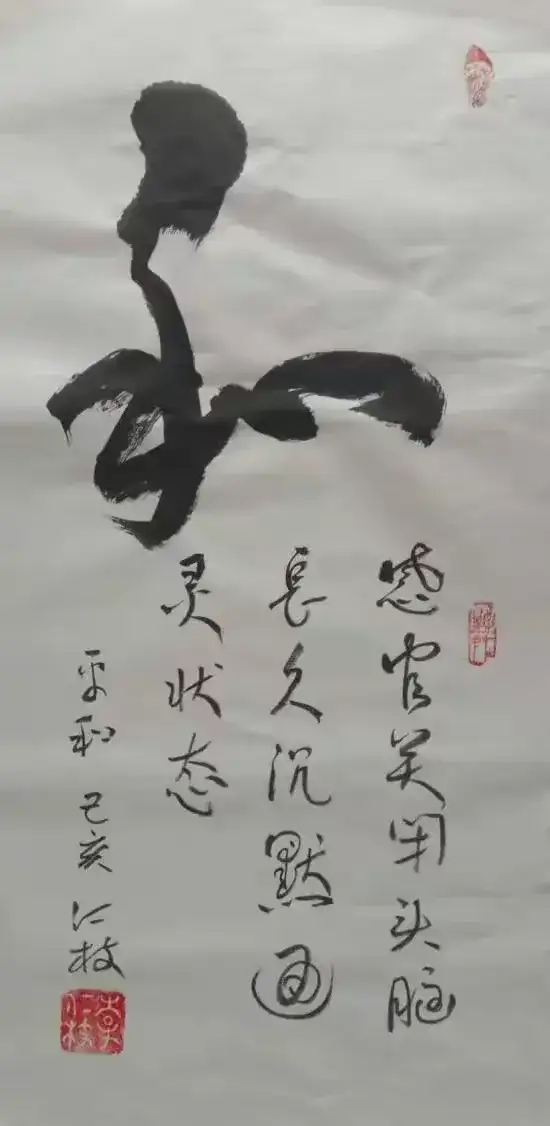 和
感官关闭头脑
长久沉默通
灵状态
平和 己亥 仁枝